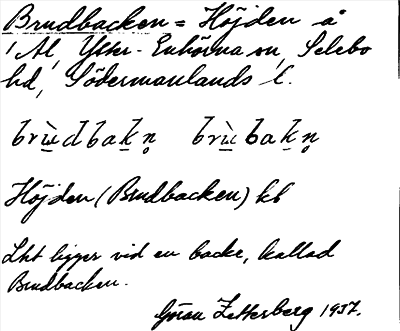 Brudbacken = Höjden å
1 Al, Ytter-Enhörna sn, Selebo
hd, Södermanlands l.
brùdbakn̥ brùbakn̥
Höjden (Brudbacken) kb
Lht ligger vid en backe, kallad
Brudbacken.
Göran Zetterberg 1937.